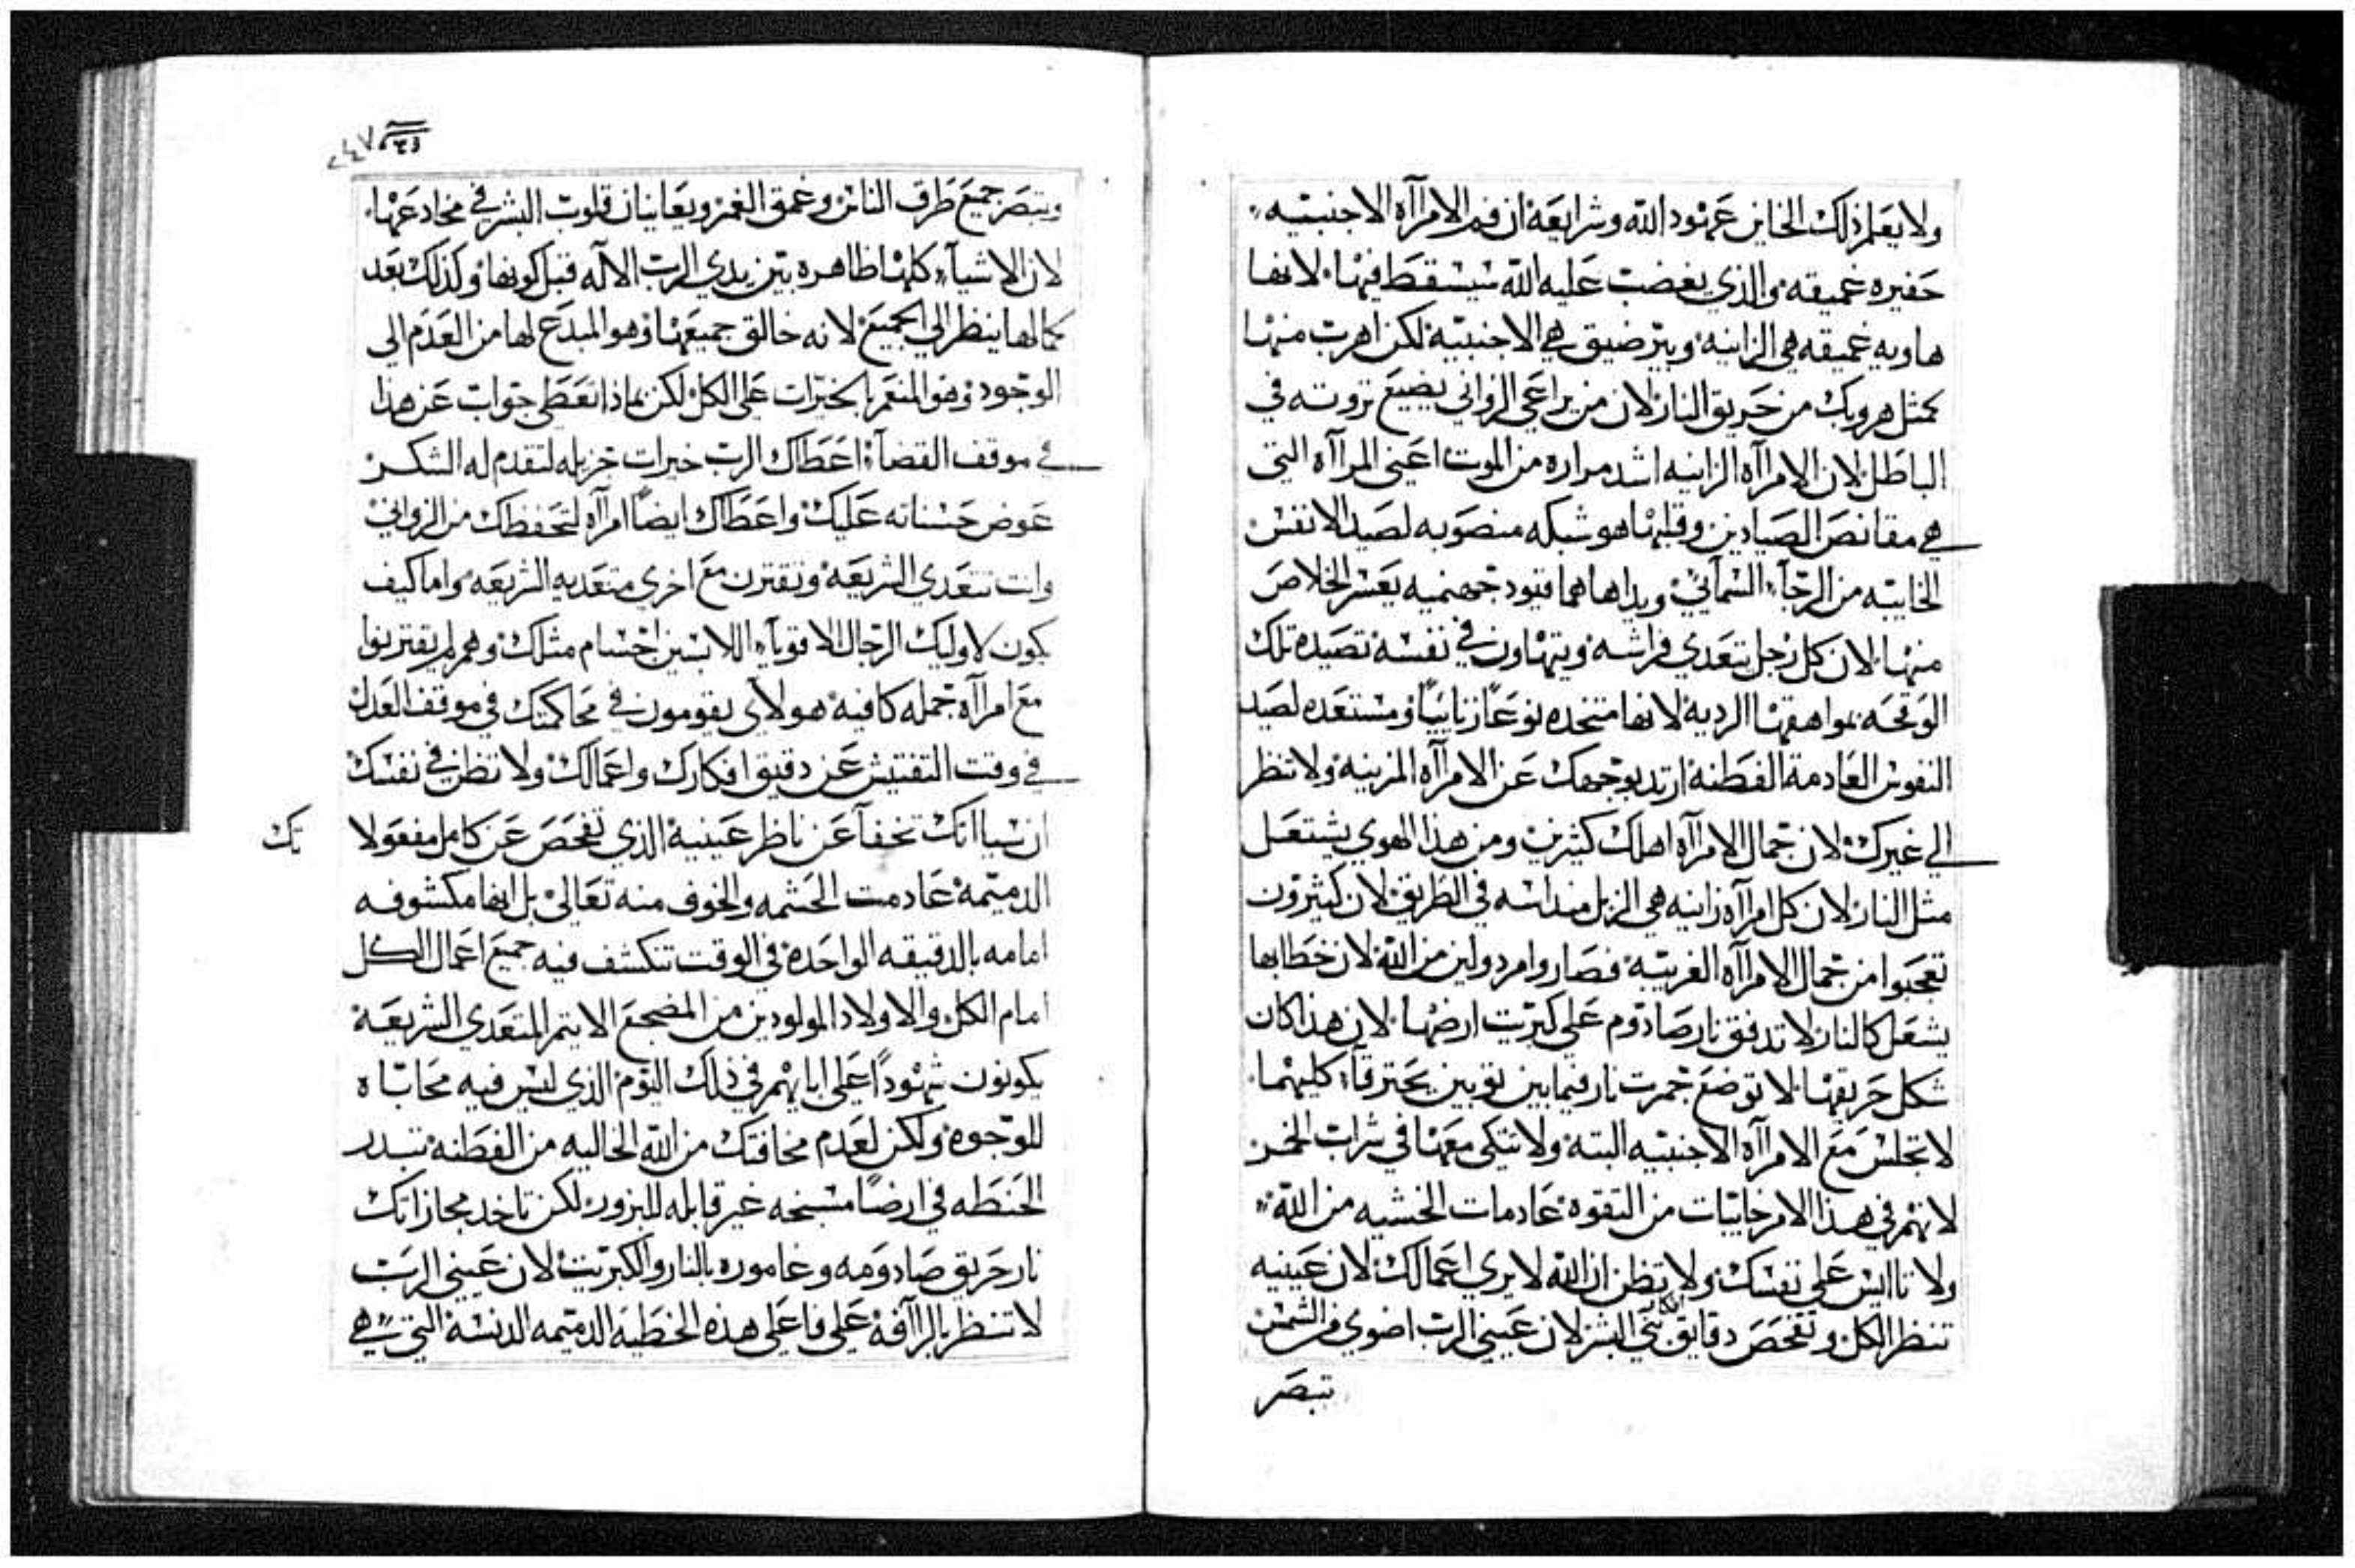 ولا يعلم ذلك الخاين عهود الله وشرايعه ان فم الامرآاه الاجنبيه
حفيره عميقه والذي يغضب عليه الله سيسقط فيها لانها
هاويه عميقه هي الزانيه وبير ضيق هي الاجنبيه لكن اهرب منها
كمثل هروبك من حريق النار لان من يراعي الزواني يضيع ثروته في
الباطل لان الامرآاه الزانيه اشد مراره من الموت اعني المرآاه التي
هي مقانص الصيادين وقلبها هو شبكه منصوبه لصيد الانفس
الخايبه من الرجآء السمآئي ويداها هما قيود جهنميه يعسر الخلاص
منها لان كل رجل يتعدي فراشه ويتهاون في نفسه تصيده تلك
الوقحه بمواهقها الرديه لانها متخده نوعًا زناييًا ومستعده لصيد
النفوس العادمة الفطنه ارتد بوجهك عن الامرآاه المزينه ولا تنظر
الي غيرك لان جمال الامرآاه اهلك كثيرين ومن هذا الهوي يشتعل
مثل النار لان كل امرآاه زانيه هي الزبل منداسه في الطريق لان كثيرون
تعجبوا من جمال الامرآاه الغريبه فصاروا مردولين من الله لان خطابها
يشعل كالنار لا تدفق نار صادوم علي كبريت ارضها لان هذا كان
شكل حريقها لا توضع جمرت نار فيما بين ثوبين يحترقآ كليهما
لا تجلس مع الامرآاه الاجنبيه البته ولا تتكي معها في شراب الخمر
لانهم في هذا الامر خايبات من التقوه عادمات الخشيه من الله
ولا تاايس علي نفسك ولا تظن ان الله لا يري اعمالك لان عينيه
تنظر الكل وتفحص دقايق بني البشر لان عيني الرب اضوي من الشمس
تبصر
٢٤٧
وتبصر جميع طرق الناس وعمق الغمر ويعاينان قلوب البشر في مخادعها
لان الاشيآء كلها ظاهره بين يدي الرب الاله قبل كونها وكذلك بعد
كمالها ينظر الي الجميع لانه خالق جميعها وهو المبدع لها من العدم الي
الوجود وهو المنعم بالخيرات علي الكل لكن بماذا تعطي جواب عن هذا
في موقف القضآء اعطاك الرب خيرات جزيله لتقدم له الشكر
عوض حسناته عليك واعطاك ايضًا امرآاه لتحفظك من الزواني
وانت تتعدي الشريعه وتقترن مع اخري متعديه الشريعه واما كيف
يكون لاوليك الرجال الاقويآء اللابسين اجسام مثلك وهم لم يقترنوا
مع امرآاه جمله كافيه هولاي يقومون في محاكمتك في موقف العدل
في وقت التفتيش عن دقيق افكارك واعمالك ولا تظن في نفسك
ان سياانك تخفآ عن ناظر عينية الذي تفحص عن كامل مفعولا
تك
الدميمة عادمت الحشمه والخوف منه تعالي بل انها مكشوفه
امامه بالدقيقه الواحده في الوقت تنكشف فيه جميع اعمال الكل
امام الكل والاولاد المولودين من المضجع الايتم المتعدي الشريعة
يكونون شهودًا علي ابايهم في ذلك اليوم الذي ليس فيه محاباه
للوجوه ولكن لعدم مخافتك من الله الخاليه من الفطنه تبدر
الحنطه في ارضًا مسبخه غير قابله للبزور لكن تاخد مجازاتك
نار حريق صادومه وعاموره بالنار والكبريت لان عيني الرب
لا تنظر بالرآافه علي فاعلي هذه الخطيه الدميمه الدنسه التي هي